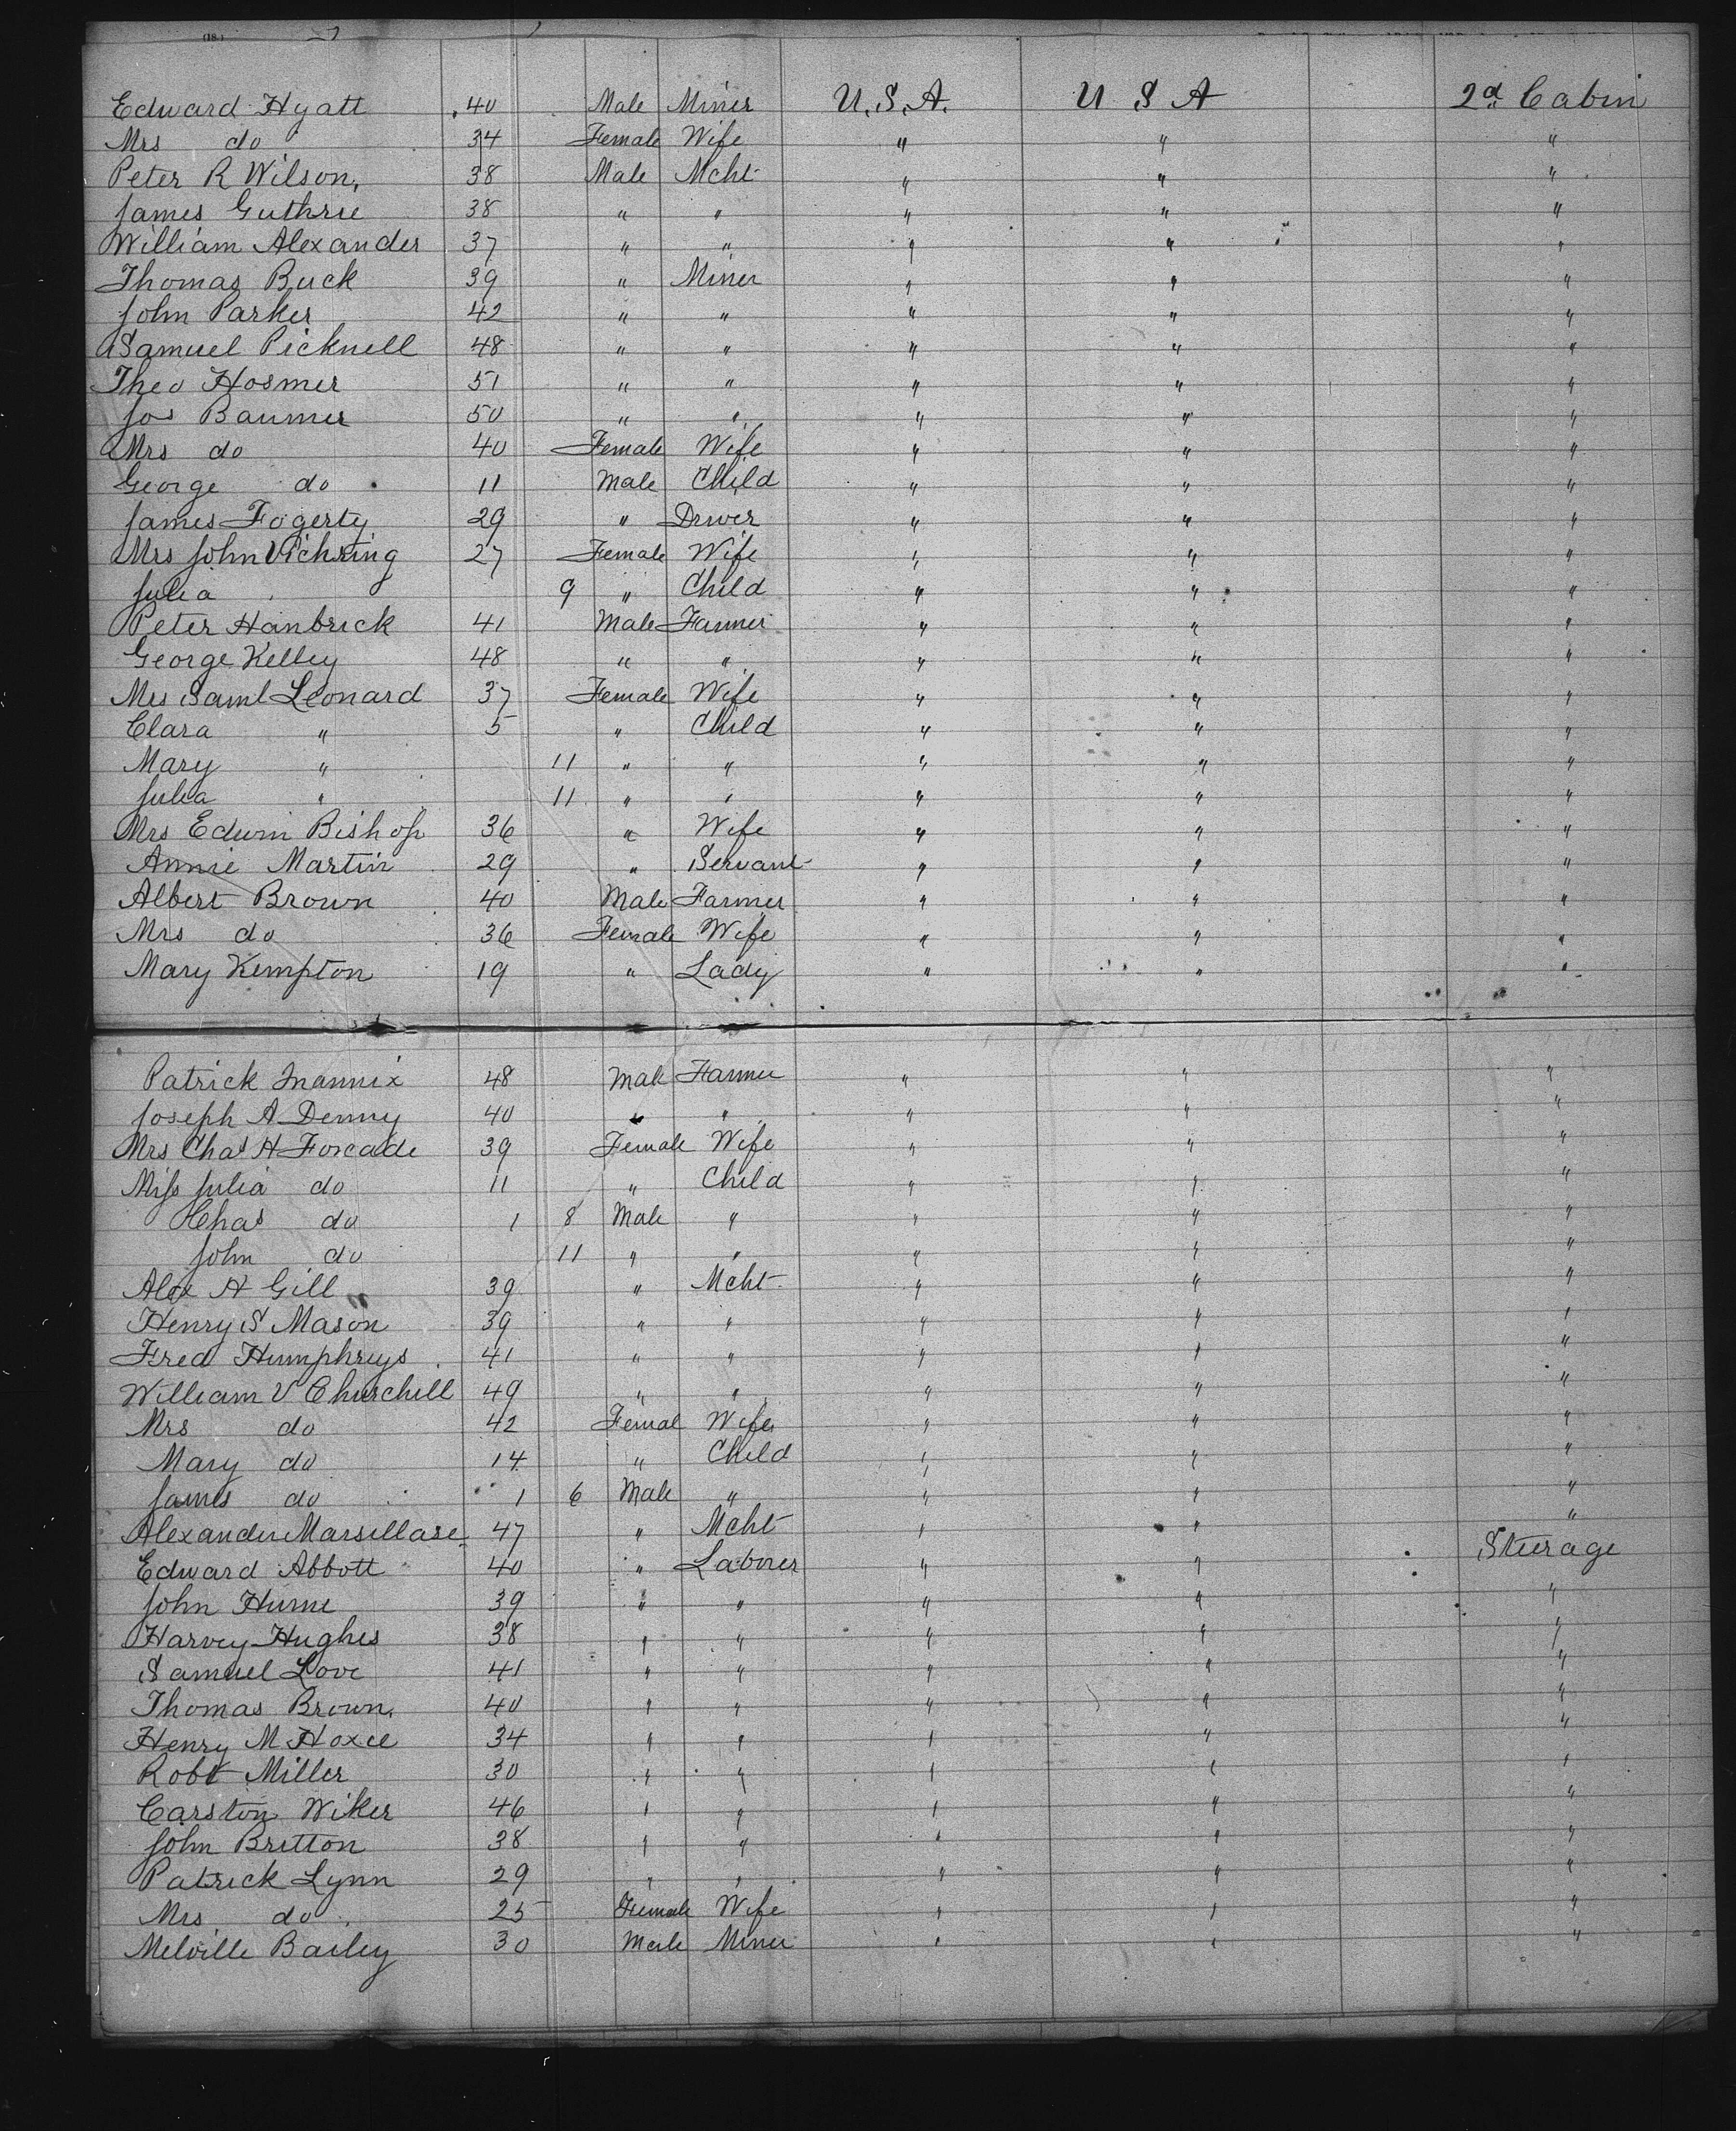 Edward Hyatt 40 Male Miner U.S.A. U S A 2d Cabin
Mrs do 34 Female Wife " " "
Peter R Wilson, 38 Male Mcht " " "
James Guthrie 38 " " " " "
William Alexander 37 " " " " "
Thomas Buck 39 " Miner " " "
John Parker 42 " " " " "
Samuel Picknell 48 " " " " "
Theo Hosmer 51 " " " " "
Jos Baumer 50 " " " " "
Mrs do 40 Female Wife " " "
George do 11 Male Child " " "
James Fogerty 29 " Driver " " "
Mrs John Vichring 27 Female Wife " " "
Julia 9 " Child " " "
Peter Hanbrick 41 Male Farmer " " "
George Kelley 48 " " " " "
Mrs Saml Leonard 37 Female Wife " " "
Clara " 5 " Child " " "
Mary " 11 " " " " "
Julia " 11 " " " " "
Mrs Edwin Bishop 36 " Wife " " "
Annie Martin 29 " Servant " " "
Albert Brown 40 Male Farmer " " "
Mrs do 36 Female Wife " " "
Mary Kempton 19 " Lady " " "
Patrick Mannix 48 Male Farmer " " "
Joseph A Denny 40 " " " " "
Mrs Chas H Forcade 39 Female Wife " " "
Miss Julia do 11 " Child " " "
Chas do 1 8 Male " " " "
John do 11 " " " " "
Alex H Gill 39 " Mcht " " "
Henry S Mason 39 " " " " "
Fred Humphreys 41 " " " " "
William V Churchill 49 " " " " "
Mrs do 42 Femal Wife " " "
Mary do 14 " Child " " "
James do 1 6 Male " " " "
Alexander Marsillase 47 " Mcht " " "
Edward Abbott 40 " Laborer " " Steerage
John Hume 39 " " " " "
Harvey Hughes 38 " " " " "
Samuel Love 41 " " " " "
Thomas Brown, 40 " " " " "
Henry M Hoxie 34 " " " " "
Robt Miller 30 " " " " "
Carston Wiker 46 " " " " "
John Britton 38 " " " " "
Patrick Lynn 29 " " " " "
Mrs do 25 Female Wife " " "
Melville Bailey 30 Male Miner " " "